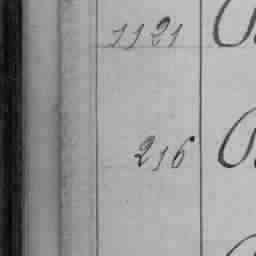 1121
216